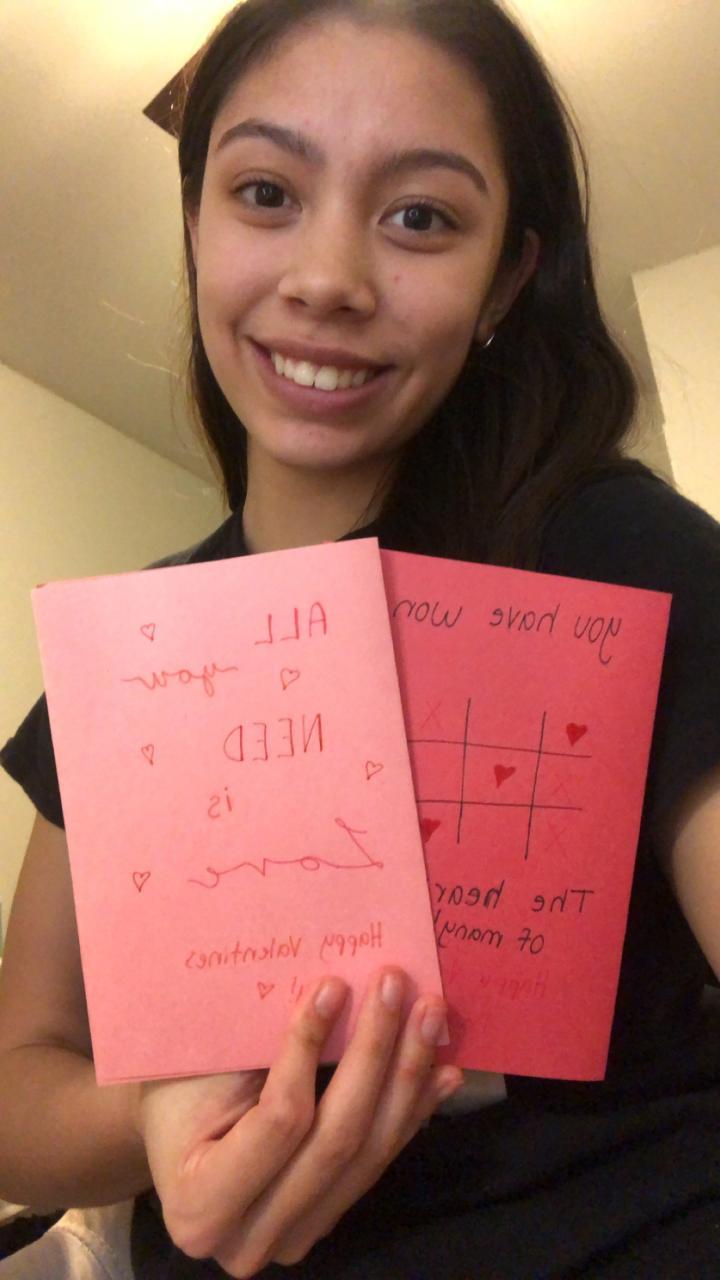 ALL
you
NEED
is
Love
Happy Valentines
!!
you have won
X
X
X
The hear
of many
Happy